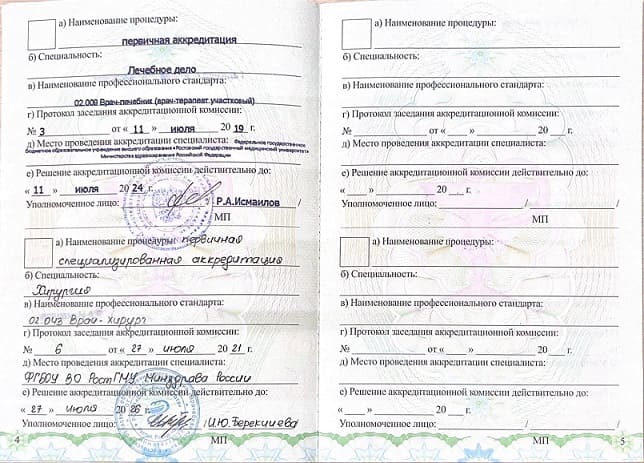 а) Наименование процедуры:
первичная аккредитация
б) Специальность:
Лечебное дело
в) Наименование профессионального стандарта:
02.009 Врач-лечебник (врач-терапевт участковый)
г) Протокол заседания аккредитационной комиссии:
№ 3 от « 11 » июля 20 19 г.
д) Место проведения аккредитации специалиста: Федеральное государственное
бюджетное образовательное учреждение высшего образования «Ростовский государственный медицинский университет»
Министерства здравоохранения Российской Федерации
е) Решение аккредитационной комиссии действительно до:
« 11 » июля 20 24 г.
Уполномоченное лицо: / Р.А.Исмаилов /
МП
а) Наименование процедуры: первичная
специализированная аккредитация
б) Специальность:
Хирургия
в) Наименование профессионального стандарта:
02.043 Врач-хирург
г) Протокол заседания аккредитационной комиссии:
№ 6 от « 27 » июля 20 21 г.
д) Место проведения аккредитации специалиста:
ФГБОУ ВО РостГМУ Минздрава России
е) Решение аккредитационной комиссии действительно до:
« 27 » июля 20 26 г.
Уполномоченное лицо: / И.Ю.Берекчиева /
4 МП
а) Наименование процедуры:
б) Специальность:
в) Наименование профессионального стандарта:
г) Протокол заседания аккредитационной комиссии:
№ от « » 20 г.
д) Место проведения аккредитации специалиста:
е) Решение аккредитационной комиссии действительно до:
« » 20 г.
Уполномоченное лицо: / /
МП
а) Наименование процедуры:
б) Специальность:
в) Наименование профессионального стандарта:
г) Протокол заседания аккредитационной комиссии:
№ от « » 20 г.
д) Место проведения аккредитации специалиста:
е) Решение аккредитационной комиссии действительно до:
« » 20 г.
Уполномоченное лицо: / /
МП 5